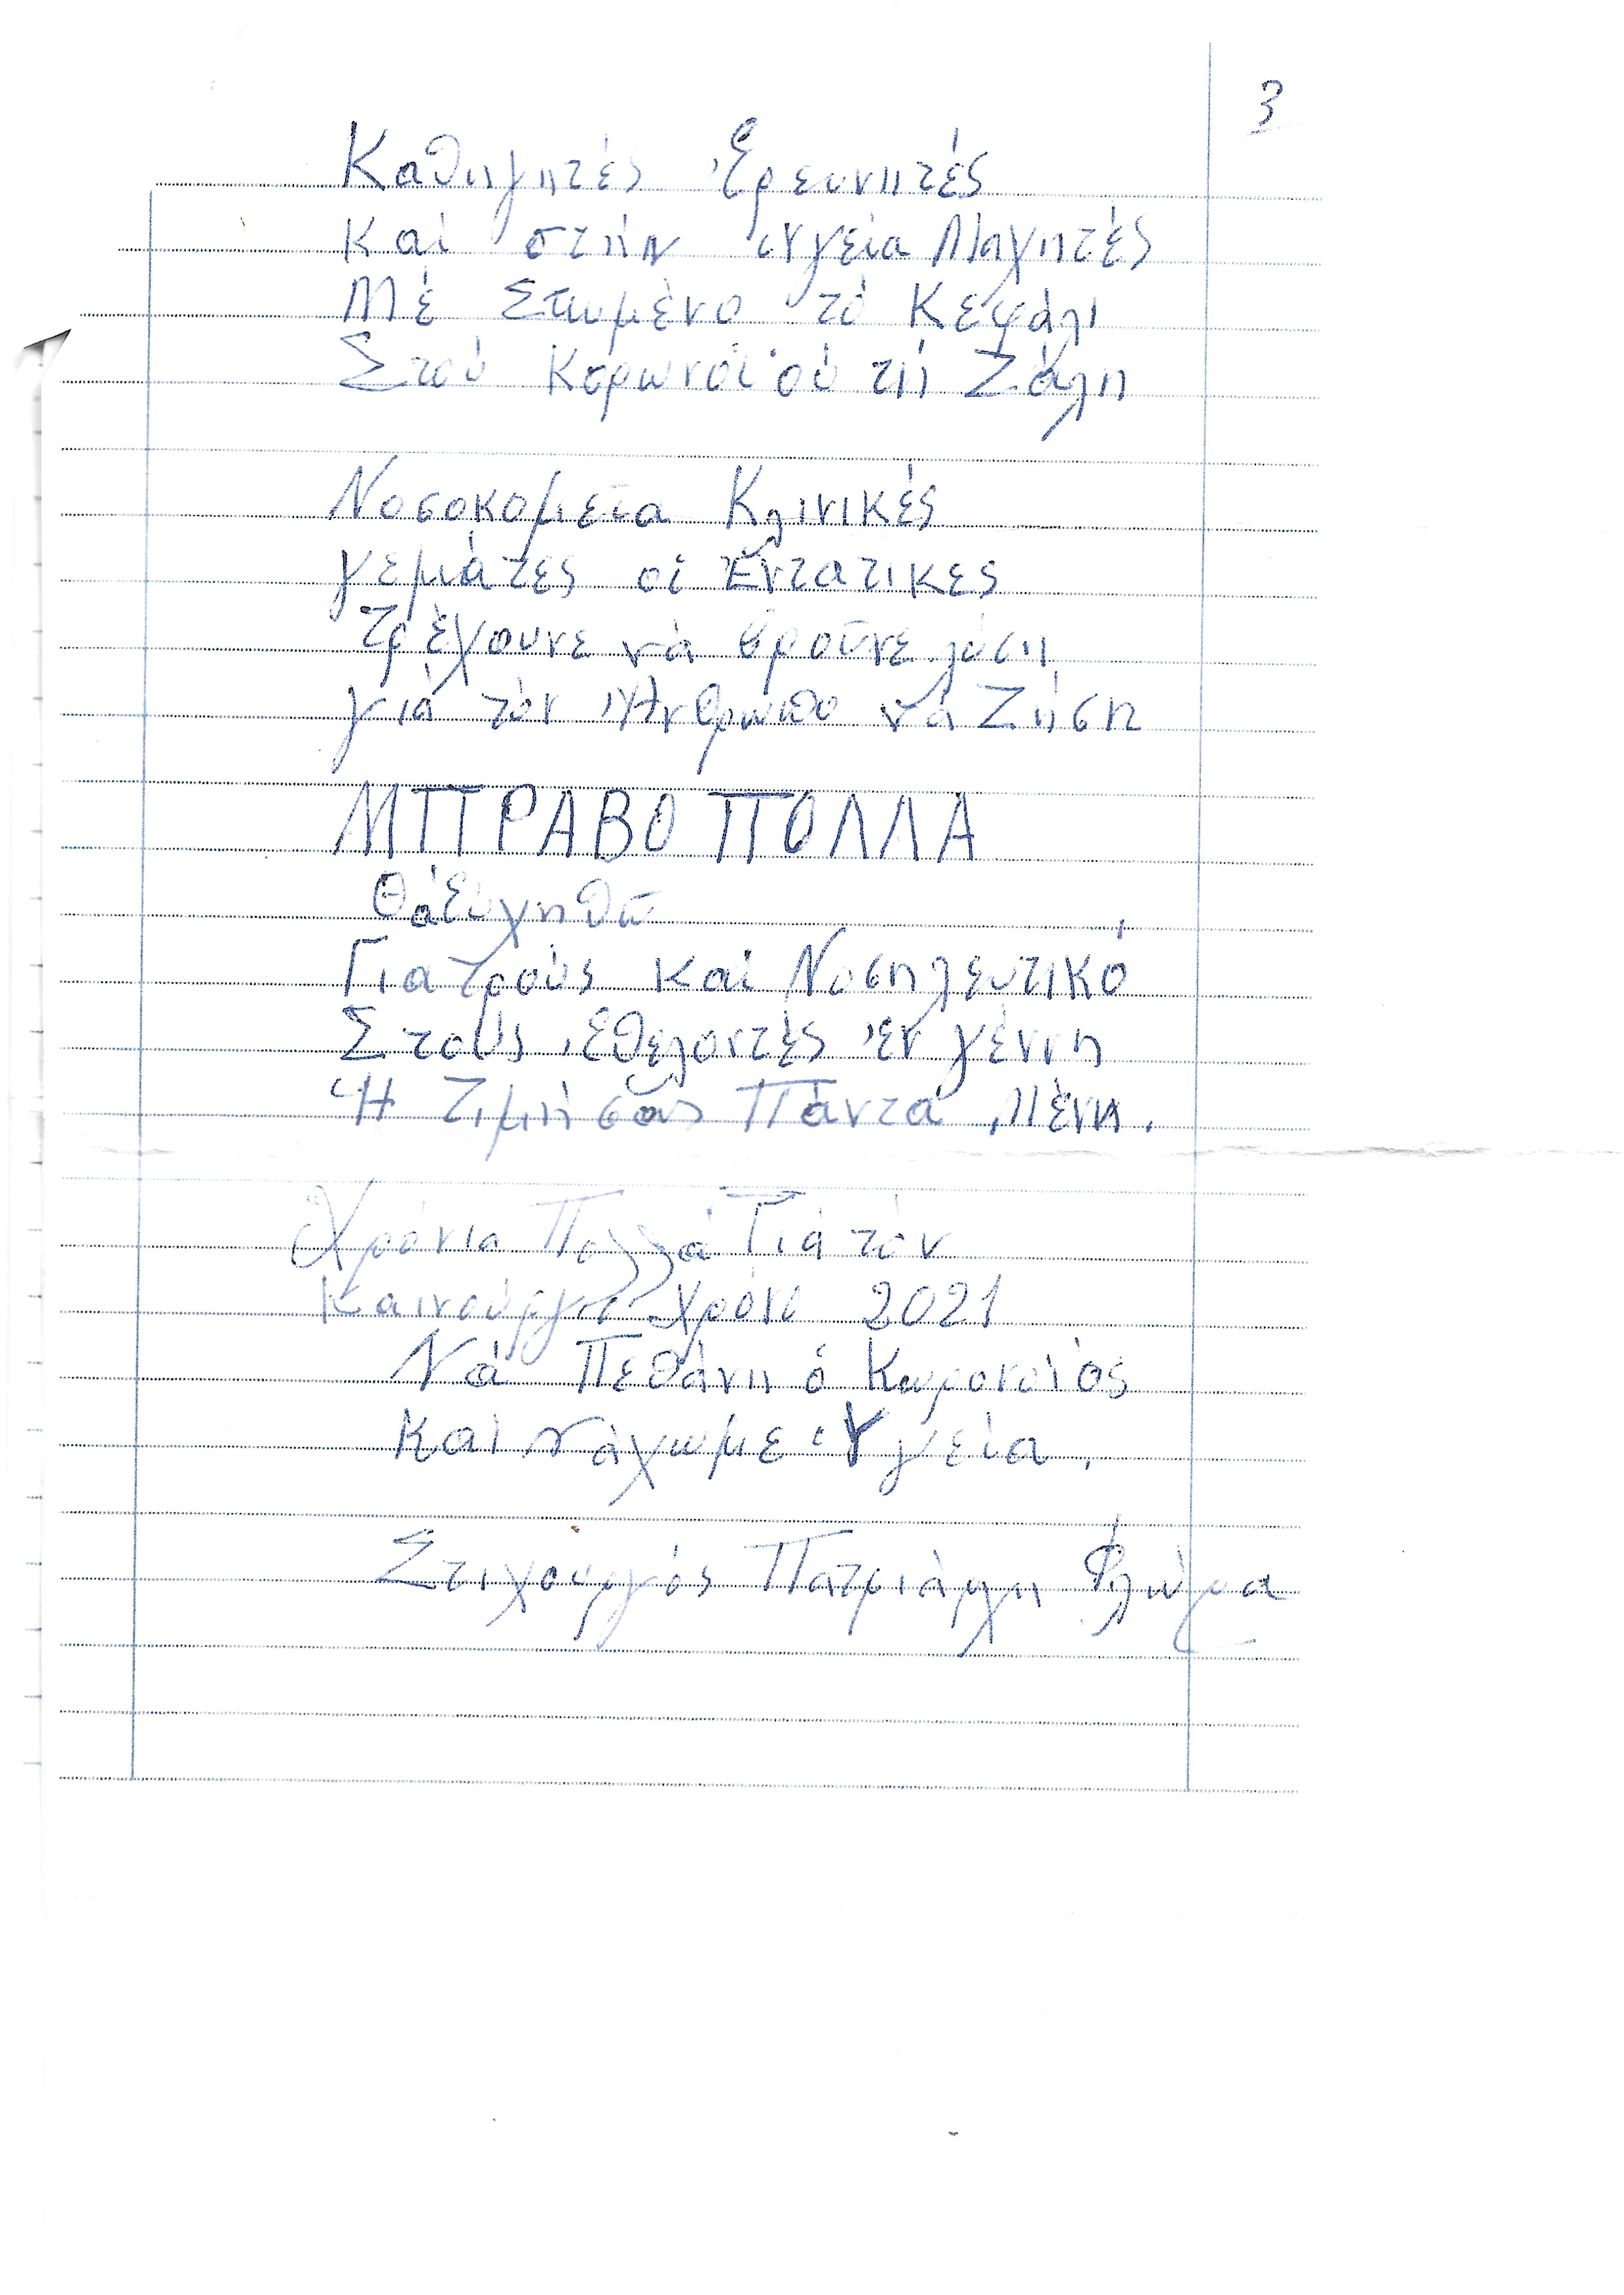 3
Καθηγητές Ἐρευνητές
καί στήν ὑγεία Μαχητές
Μέ Σκυμένο τό Κεφάλι
Στοῦ Κορωνοϊοὐ τή Ζάλη
Νοσοκομεῖα Κλινικές
γεμάτες οἱ Ἐντατικες
τρέχουνε νά βροῦνε λύση
γιά τόν Ἄνθρωπο νά Ζήση
ΜΠΡΑΒΟ ΠΟΛΛΑ
Θά Εὐχηθῶ
Γιατρούς καί Νοσηλευτικό
Στούς Ἐθελοντές ἐν γέννη
Ἡ Τιμή σᾶς Πάντα Μένη.
Χρόνια Πολλά Γιά τόν
Καινούργιο Χρόνο 2021
Νά Πεθάνη ὁ Κωρονοϊός
Καί νάχωμε Ὑγεία.
Στιχουργός Πατριάρχη Φλώρα